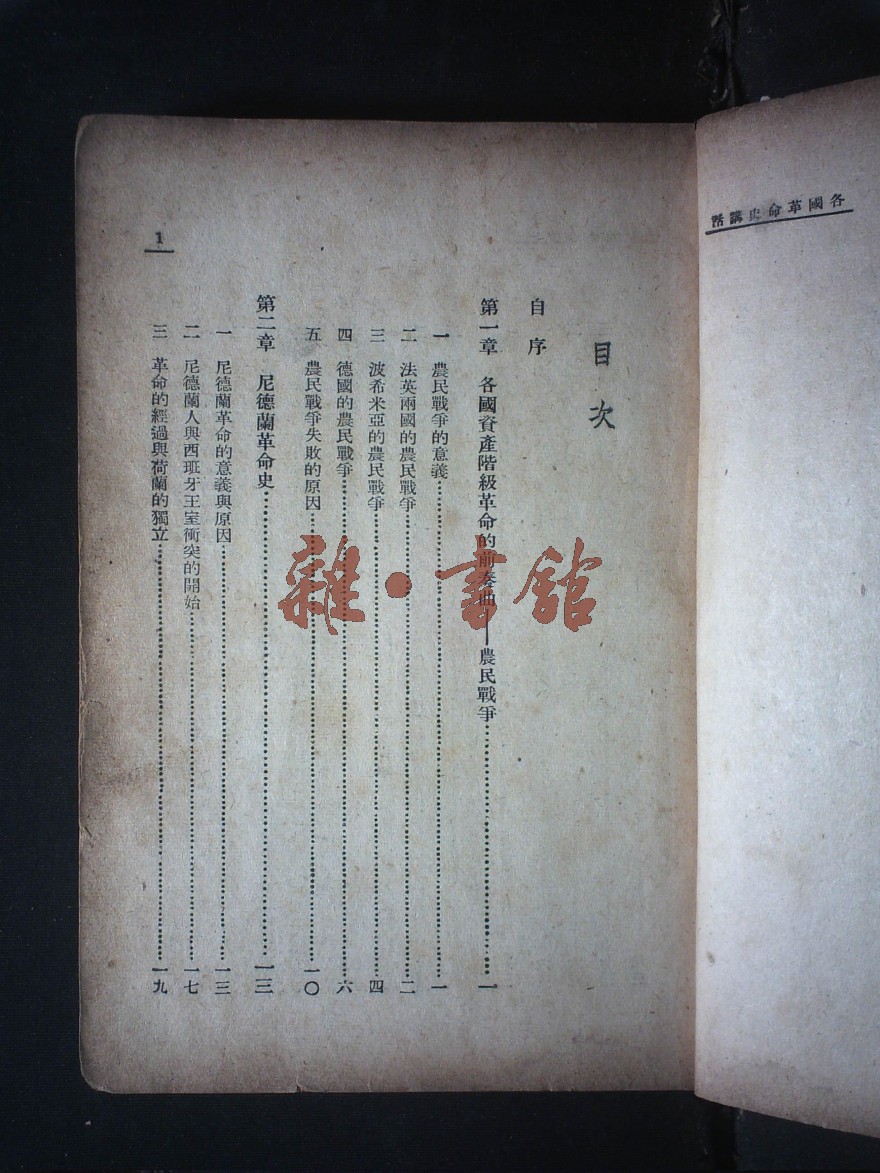 各國革命史講話
目次
自序
第一章 各國資產階級革命的前奏曲——農民戰爭……一
一 農民戰爭的意義……一
二 法英兩國的農民戰爭……二
三 波希米亞的農民戰爭……四
四 德國的農民戰爭……六
五 農民戰爭失敗的原因……一〇
第二章 尼德蘭革命史……一三
一 尼德蘭革命的意義與原因……一三
二 尼德蘭人與西班牙王室衝突的開始……一七
三 革命的經過與荷蘭的獨立……一九
1
雜·書館